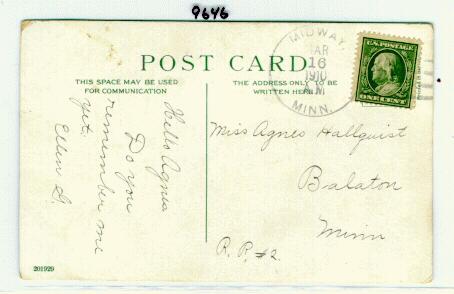 9646
POST CARD
THIS SPACE MAY BE USED
FOR COMMUNICATION
THE ADDRESS ONLY TO BE
WRITTEN HERE
MIDWAY,
MAR
16
1910
MINN.
U.S. POSTAGE
ONE CENT
Hello Agnes
Do you
remember me
yet.
Ellen G.
Miss Agnes Hallquist
Balaton
Minn
R.R. #2.
201929